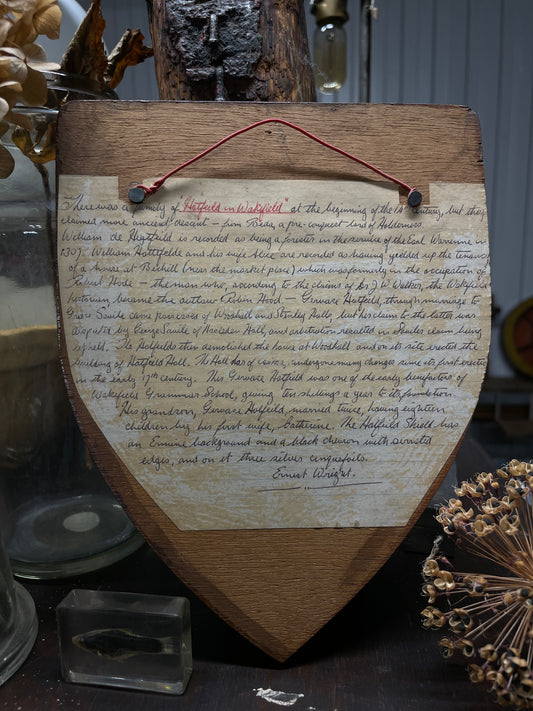 There was a family of "Hatfields in Wakefield" at the beginning of the 14th century, but they
claimed more ancient descent – from Beda, a pre-conquest lord of Holderness.
William de Haytfeild is recorded as being a forester in the service of the Earl Warenne in
1307. William Hattefelde and his wife Alice are recorded as having yielded up the tenancy
of a house at Bichill (near the market place) which was formerly in the occupation of
Robert Hode – the man who, according to the claims of Dr J W Walker, the Wakefield
historian became the outlaw Robin Hood. – Gervase Hatfeild, through marriage to
Grace Savile came possession of Woodhall and Stanley Hall, but his claim to the latter was
disputed by George Savile of Haselden Hall, and arbitration resulted in Savile's claim being
upheld. The Hatfeilds then demolished the house at Woodhall and on its site erected the
building of Hatfeild Hall. The Hall has of course, undergone many changes since its first erection
in the early 17th century. This Gervase Hatfeild was one of the early benefactors of
Wakefield Grammar School, giving ten shillings a year to its foundation.
His grandson, Gervase Hatfeild, married twice, having eighteen
children by his first wife, Catherine. The Hatfield Shield has
an Ermine background and a black chevron with serrated
edges, and on it three silver cinquefoils.
Ernest Wright.